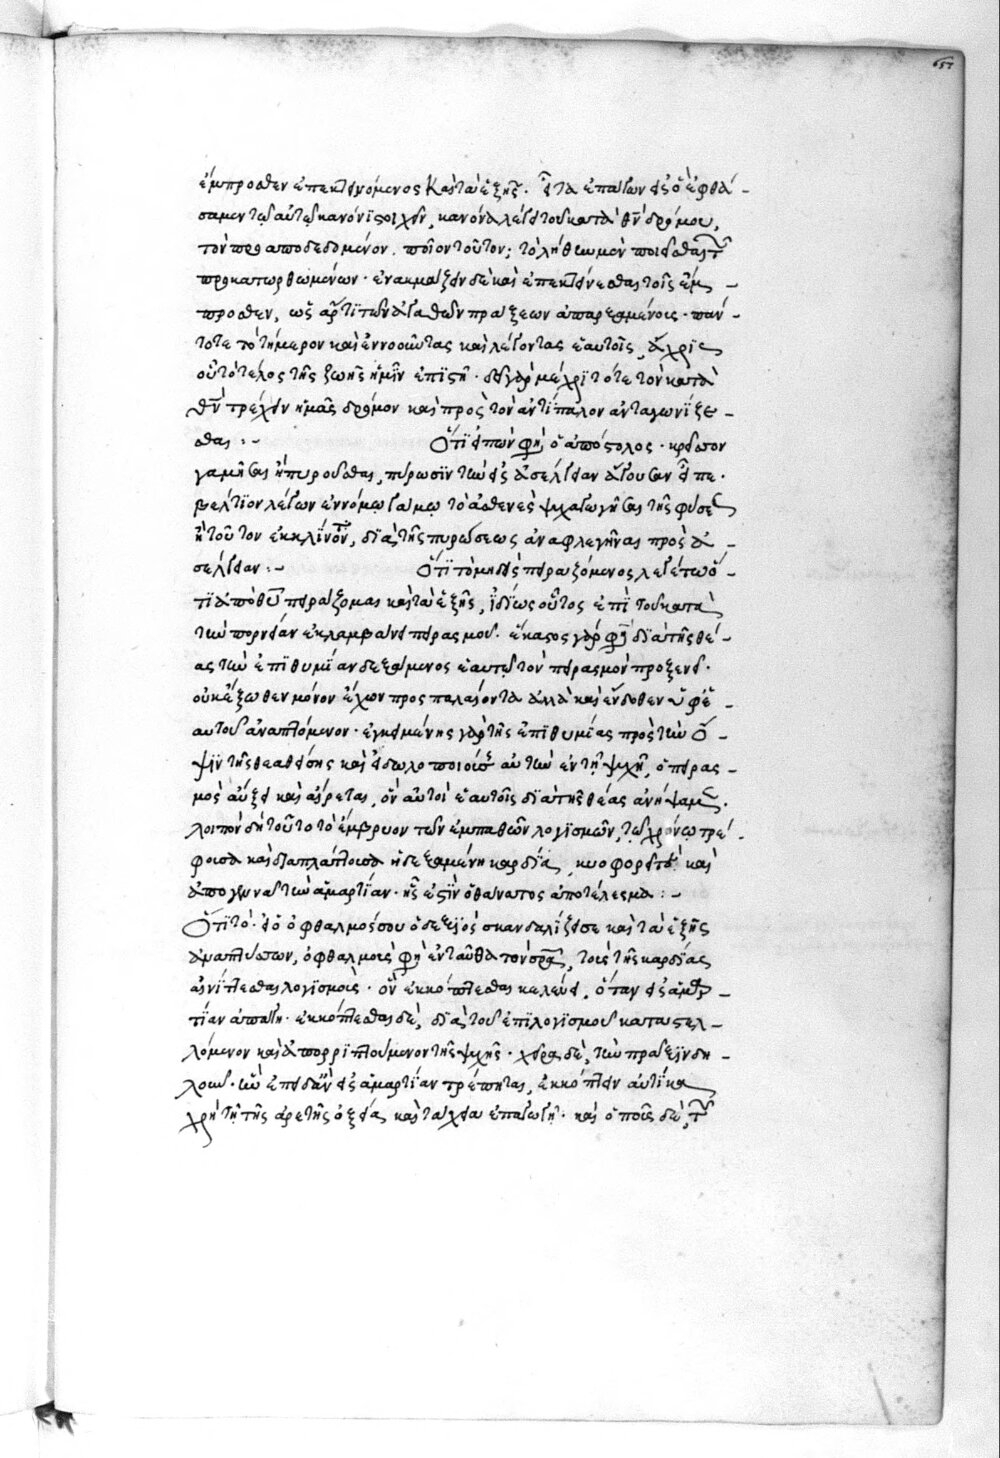 657
ἔμπροσθεν ἐπεκτεινόμενος καὶ τὰ ἑξῆς. εἶτα ἐπάγων εἰς ὃ ἐφθά -
σαμεν τῷ αὐτῷ κανόνι στοιχεῖν, κανόνα λέγει τοῦ κατὰ θν δρόμου,
τὸν προαποδεδομένον. ποῖον τοῦτον; τὸ λήθην μὲν ποιεῖσθαι τῶν
προκατωρθωμένων. ἐνακμάζειν δὲ καὶ ἐπεκτείνεσθαι τοῖς ἔμ -
προσθεν, ὡς ἄρτι τῶν ἀγαθῶν πράξεων ἀπαρξαμένοις. πάν -
τοτε τὸ τήμερον καὶ ἐννοοῦντας καὶ λέγοντας ἑαυτοῖς, ἄχρις
οὗ τὸ τέλος τῆς ζωῆς ἡμῖν ἐπιστῇ. δεῖ γὰρ μέχρι τότε τὸν κατὰ
θν τρέχειν ἡμᾶς δρόμον καὶ πρὸς τὸν ἀντίπαλον ἀνταγωνίζε -
σθαι :- Ὅτι εἰπὼν φησὶ ὁ ἀπόστολος. κρεῖττον
γαμῆσαι ἢ πυροῦσθαι, πύρωσιν τὴν εἰς ἀσέλγειαν ἄγουσαν εἶπε.
βέλτιον λέγων ἐννόμῳ γάμῳ τὸ ἀσθενὲς ψυχαγωγῆσαι τῆς φύσεως
ἢ τοῦτον ἐκκλίνοντα, διὰ τῆς πυρώσεως ἀναφλεγῆναι πρὸς ἀ -
σέλγειαν :- Ὅτι τὸ μηδεὶς πειραζόμενος λεγέτω ὅ -
τι ἀπὸ θυ πειράζομαι καὶ τὰ ἑξῆς, ἰδίως οὗτος ἐπὶ τοῦ κατὰ
τὴν πορνείαν ἐκλαμβάνει πειρασμοῦ. ἕκαστος γάρ φησι διὰ τῆς θέ -
ας τὴν ἐπιθυμίαν δεξάμενος ἑαυτῷ τὸν πειρασμὸν προξενεῖ.
οὐκ ἔξωθεν μόνον ἔχων προσπαλαίοντα ἀλλὰ καὶ ἔνδοθεν ὑφ' ἑ -
αυτοῦ ἀναπτόμενον. ἐγκειμένης γὰρ τῆς ἐπιθυμίας πρὸς τὴν ὄ -
ψιν τῆς θεαθείσης καὶ εἰδωλοποιούσης αὐτὴν ἐν τῇ ψυχῇ, ὁ πειρασ -
μὸς αὔξει καὶ αἴρεται, ὃν αὐτοὶ ἑαυτοῖς διὰ τῆς θέας ἀνήψαμεν.
λοιπὸν δὴ τοῦτο τὸ ἔμβρυον τῶν ἐμπαθῶν λογισμῶν, τῷ χρόνῳ τρέ -
φουσα καὶ διαπλάττουσα ἡ δεξαμένη καρδία, κυοφορεῖ τε καὶ
ἀπογεννᾷ τὴν ἁμαρτίαν. ἧς ἐστὶν ὁ θάνατος ἀποτέλεσμα :-
Ὅτι τὸ. εἰ ὁ ὀφθαλμός σου ὁ δεξιὸς σκανδαλίζει σε καὶ τὰ ἑξῆς
ἀναπτύσσων, ὀφθαλμοὺς φησὶ ἐνταῦθα τὸν σωτῆρα, τοὺς τῆς καρδίας
αἰνίττεσθαι λογισμούς. οὓς ἐκκόπτεσθαι κελεύει, ὅταν εἰς ἁμαρ -
τίαν ἀπάγῃ. ἐκκόπτεσθαι δὲ, διὰ τοῦ ἐπιλογισμοῦ καταστελ -
λόμενον καὶ ἀπορριπτούμενον τῆς ψυχῆς. χεῖρα δὲ, τὴν πρᾶξιν δη -
λοῦν. ἣν ἐπειδὰν εἰς ἁμαρτίαν τρέπηται, ἐκκόπτειν αὐτίκα
χρὴ τῇ τῆς ἀρετῆς ὀξείᾳ καὶ ταχείᾳ ἐπαγωγῇ. καὶ ὁ ποῦς δὲ, τὴν